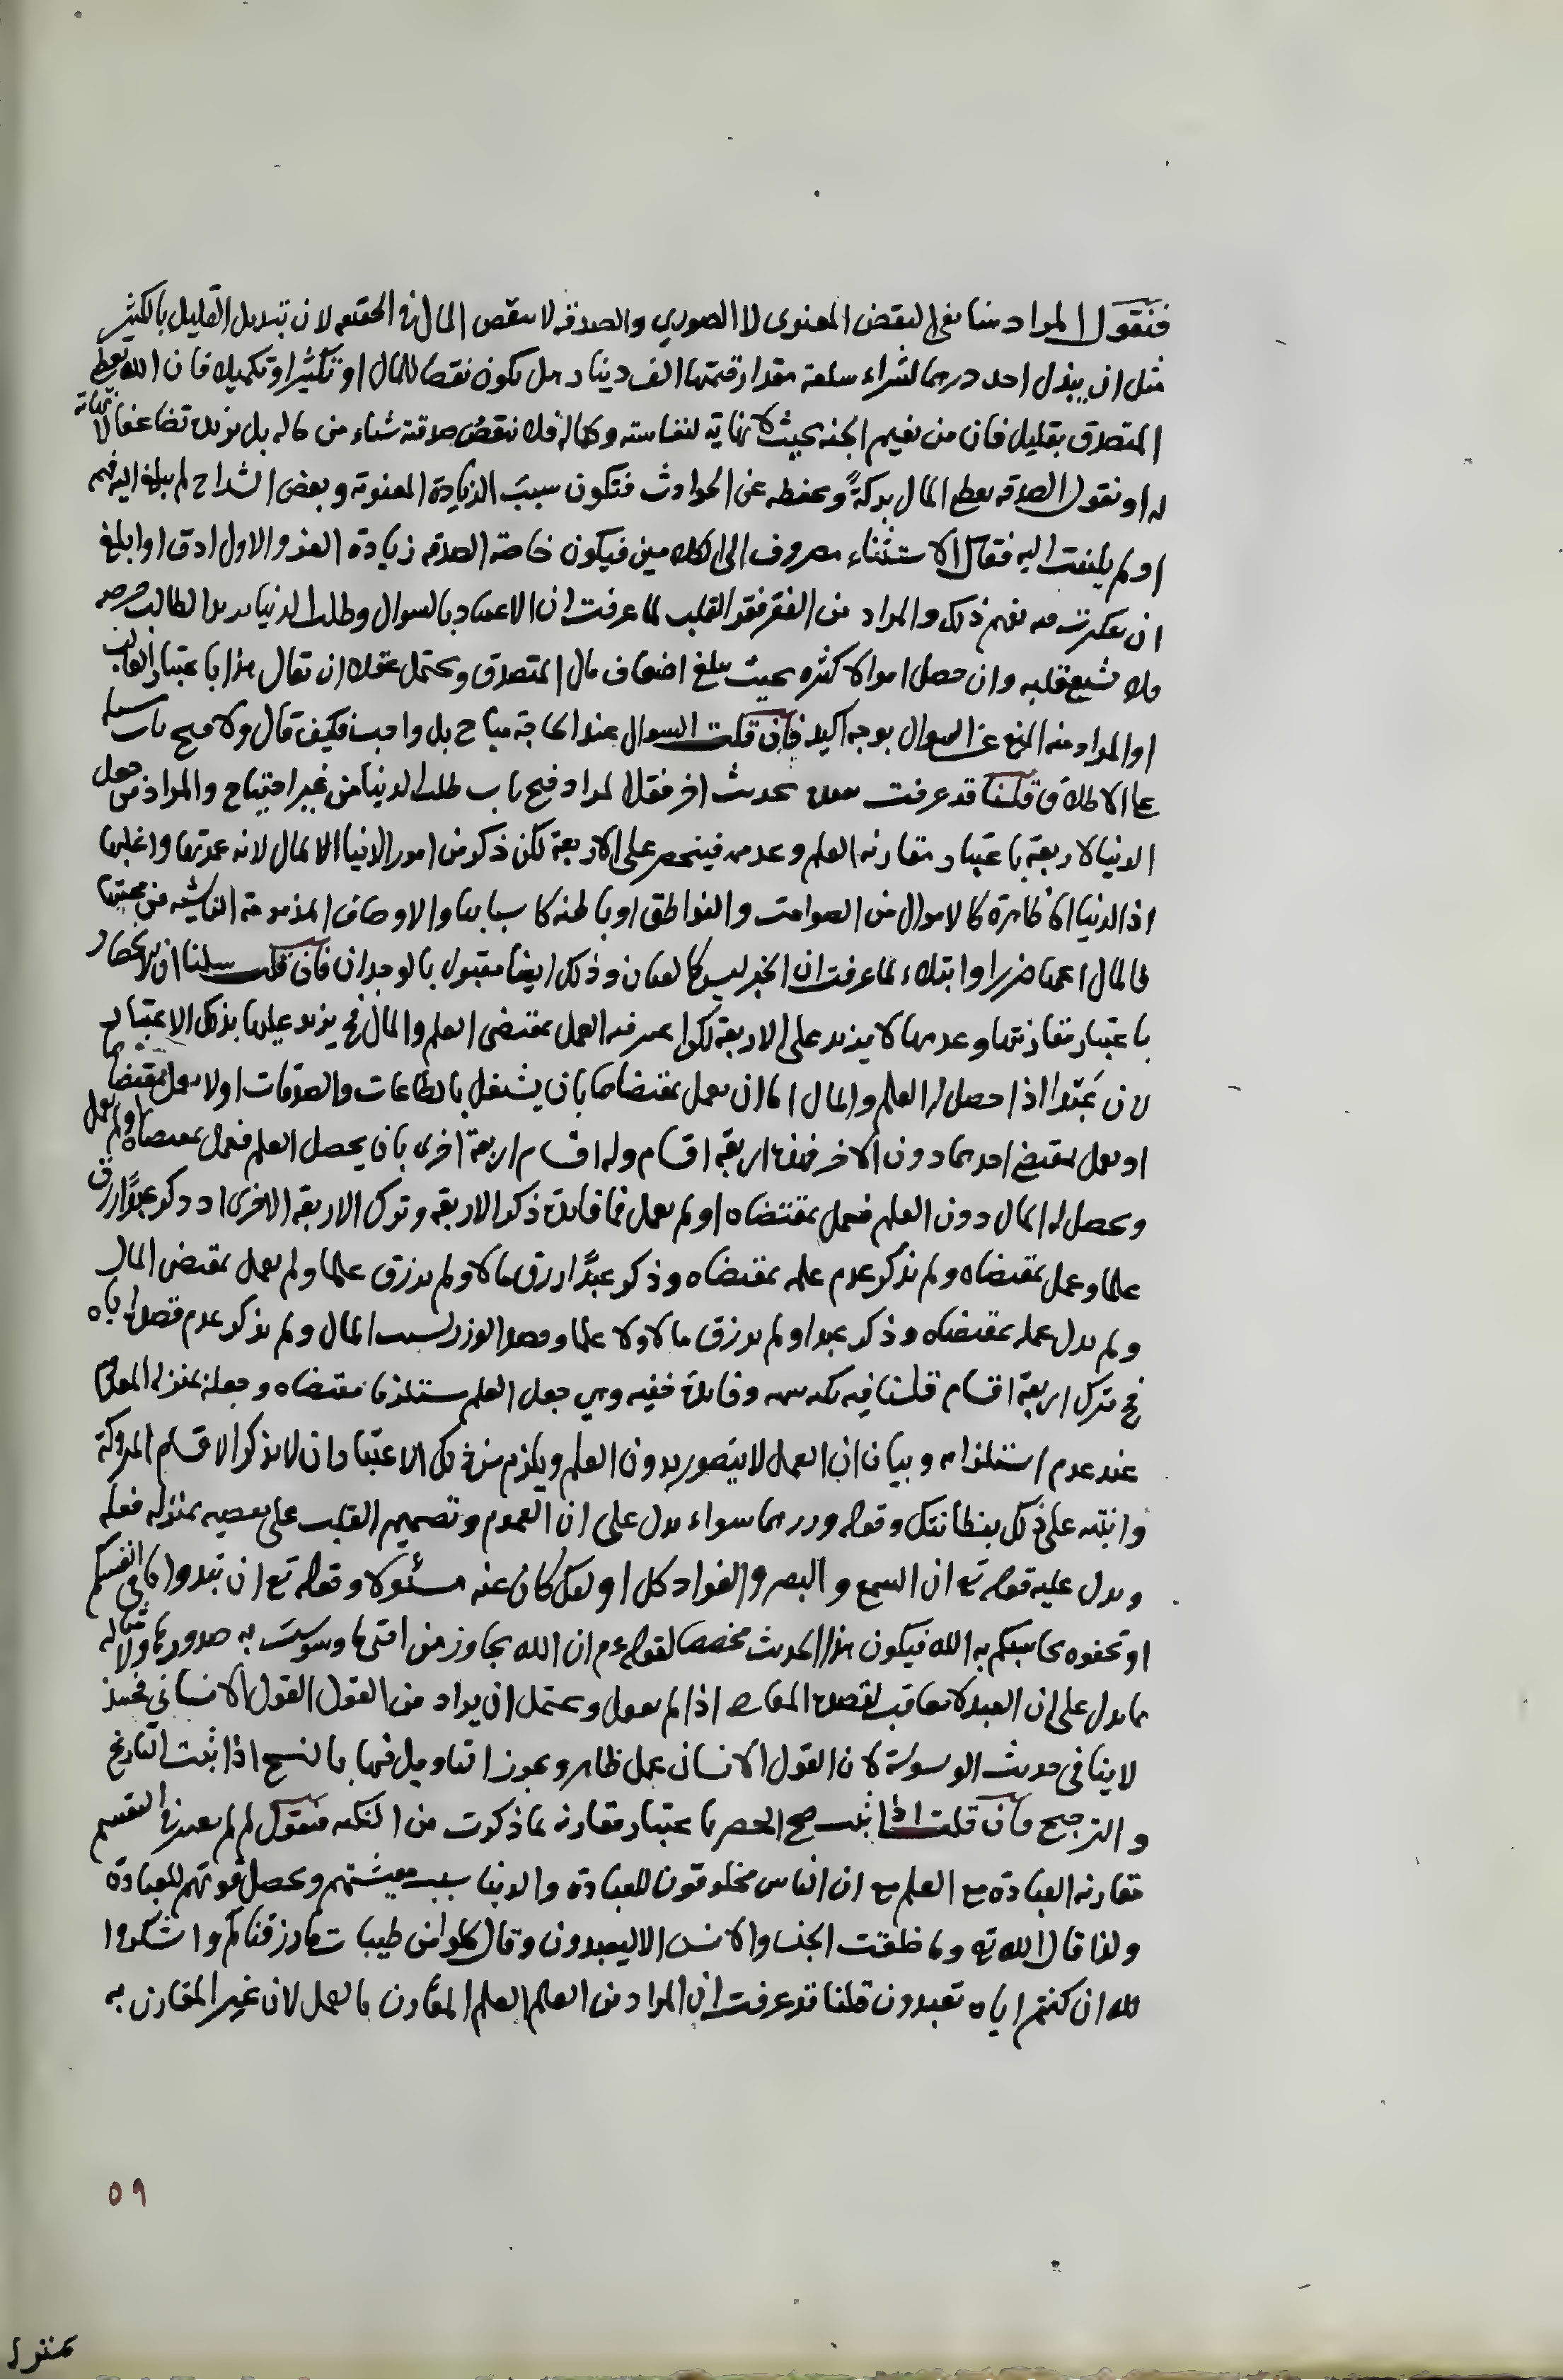 فنقول المراد هنا نفي النقص المعنوى لا الصوري والصدقة لا ينقص المال في الحقيقة لان تبديل القليل بالكثير
مثل ان يبذل احد درهما لشراء سلعة مقدار قيمتها الف دينار هل يكون نقصا للمال او تكثيرا وتكميلا فان الله يعطى
المتصدق بقليل فان من نعيم الجنة بحيث لا نهاية لنفاسته وكماله فلا ينقص صدقته شيئا من ماله بل يزيده تضاعفا لا نهاية
له او نقول الصدقة يعطى المال بركةً ويحفظه عن الحوادث فتكون سبب الزيادة المعنوية وبعض الشراح لم يبلغ اليه فهمه
او لم يلتفت اليه فقال الاستثناء مصروف الى الكلامين فيكون خاصة الصدقة زيادة العز والاول ادق او ابلغ
ان تفكرت فيه تفهم ذلك والمراد من الفقر فقر القلب لما عرفت ان الاعتياد بالسوال وطلب الدنيا يزيد الطالب حرصه
فلا يشبع قلبه وان حصل اموالا كثيره بحيث يبلغ اضعاف مال المتصدق ويحتمل عقلا ان يقال هذا باعتبار الغالب
او المراد منه المنع عن السوال بوجه اكيد فان قلت السوال عند الحاجة مباح بل واجب فكيف قال ولا فتح باب مسئلة
على الاطلاق قلنا قد عرفت بحديث اخر فقال المراد فتح باب طلب الدنيا من غير احتياج والمراد من جعل
الدنيا لاربعة باعتبار مقارنة العلم وعدمه فينحصر على الاربعة لكن ذكر من امور الدنيا المال لانه عمدتها واغلبها
اذ الدنيا اما ظاهرة كالاموال من الصوامت والنواطق او باطنة كاسبابها والاوصاف المذمومة الناشية من محبتها
فالمال اعمها ضررا وابتلاء لما عرفت ان الخبر ليس كالعيان وذلك ايضا مقبول بالوجدان فان قلت سلمنا ان الانحصار
باعتبار مقارنتها وعدمها لا يزيد على الاربعة لكن العمل بمقتضى العلم والمال فح يزيد عليها بذلك الاعتبار
لان عبدا اذا حصل له العلم والمال اما ان يعمل بمقتضاهما بان يشتغل بالطاعات والصدقات او لا يعمل بمقتضاهما
او يعمل بمقتضى احدهما دون الاخر فهذه اربعة اقسام وله اقسام اربعة اخرى بان يحصل العلم فيعمل بمقتضاه او لم يعمل
ويحصل له المال دون العلم فيعمل بمقتضاه او لم يعمل فما فايدة ذكر الاربعة وترك الاربعة الاخرى اذ ذكر عبدًا رزق
علما وعمل بمقتضاه ولم يذكر عدم عمله بمقتضاه وذكر عبدًا رزق مالا ولم يرزق علما ولم يعمل بمقتضى المال
ولم يدل عمله بمقتضاه وذكر عبدا ولم يرزق مالا ولا علما وقصد الوزر بسبب المال ولم يذكر عدم قصده اياه
فح ترك اربعة اقسام قلنا فيه نكتة وفايدة خفيه وهي جعل العلم مستلزما مقتضاه وجعله بمنزلة المعدوم
عند عدم استلزامه وبيان ان العمل لا يتصور بدون العلم ويلزم من ذلك الاعتبار ان لا يذكر الاقسام المتروكة
وانتبه على ذلك بفطانتك وقوله ووزرهما سواء يدل على ان العموم وتصميم القلب على معصية بمنزلة فعله
ويدل عليه قوله تع ان السمع والبصر والفواد كل اولئك كان عنه مسئولا وقوله تع ان تبدوا ما في انفسكم
او تخفوه يحاسبكم به الله فيكون هذا الحديث مخصصا لقوله عم ان الله تجاوز من امتى ما وسوست به صدورها ولامثاله
مما يدل على ان العبد لا يعاقب بقصد المعاصى اذا لم يعمل ويحتمل ان يراد من القول القول الانسانى فحينئذ
لا ينافى حديث الوسوسة لان القول الانسان عمل ظاهر ويجوز التاويل فيها بالنسخ اذا ثبت التاريخ
والترجيح فان قلت اذا ثبت صح الحصر باعتبار مقارنة بما ذكرت من النكته فنقول لم لم يعتبر في التقسيم
مقارنة العبادة مع العلم مع ان الناس مخلوقون للعبادة والدنيا سبب معيشتهم ويحصل قوتهم للعبادة
ولذا قال الله تع وما خلقت الجن والانس الا ليعبدون وقال كلوا من طيبات ما رزقناكم واشكروا
لله ان كنتم اياه تعبدون قلنا قد عرفت ان المراد من العلم العلم المقارن بالعمل لان غير المقارن به
٥٩
بمنزلة